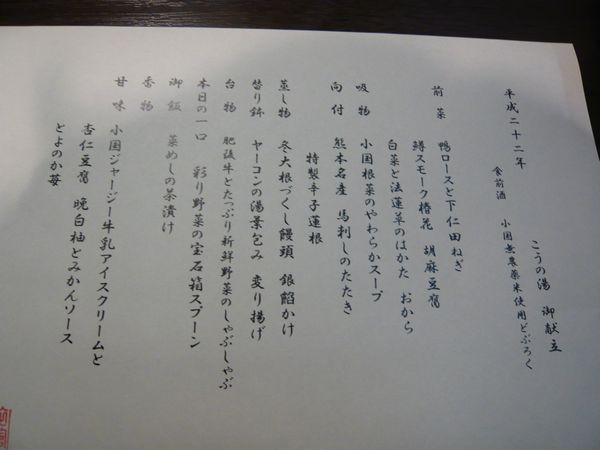 こうの湯 御献立
平成二十二年
食前酒 小国無農薬米使用どぶろく
前菜 鴨ロースと下仁田ねぎ
鱒スモーク椿花 胡麻豆腐
白菜と法蓮草のはかた おから
吸物 小国根菜のやわらかスープ
向付 熊本名産 馬刺しのたたき
特製辛子蓮根
蒸し物 冬大根づくし饅頭 銀餡かけ
替り鉢 ヤーコンの湯葉包み 変り揚げ
台物 肥後牛とたっぷり新鮮野菜のしゃぶしゃぶ
本日の一口 彩り野菜の宝石箱スプーン
御飯 菜めしの茶漬け
香物
甘味 小国ジャージー牛乳アイスクリームと
杏仁豆腐 晩白柚とみかんソース
とよのか苺